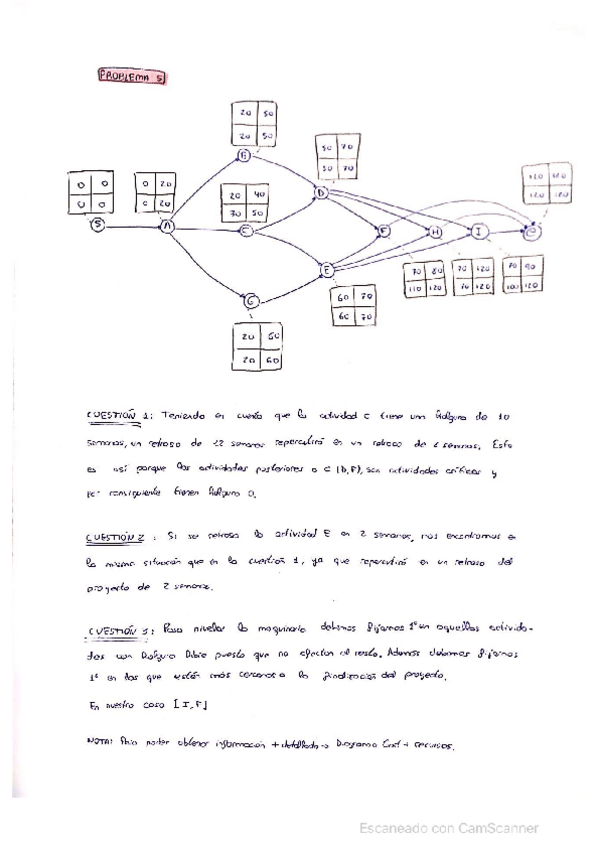 PROBLEMA 5
20 50
20 50
B
50 70
50 70
D
0 0
0 0
S
0 20
0 20
A
20 40
30 50
C
120 120
120 120
F
H
I
E
70 80
110 120
70 120
70 120
70 90
100 120
60 70
60 70
G
20 60
20 60
CUESTIÓN 1: Teniendo en cuenta que la actividad C tiene una holgura de 10
semanas, un retraso de 12 semanas repercutirá en un retraso de 2 semanas. Esto
es así porque las actividades posteriores a C (D, E), son actividades críticas y
por consiguiente tienen holgura 0.
CUESTIÓN 2: Si se retrasa la actividad E en 2 semanas, nos encontramos en
la misma situación que en la cuestión 1, ya que repercutirá en un retraso del
proyecto de 2 semanas.
CUESTIÓN 3: Para nivelar la maquinaria debemos fijarnos 1º en aquellas activida-
des con holgura libre puesto que no afectan al resto. Además debemos fijarnos
1º en las que estén más cercanas a la finalización del proyecto.
En nuestro caso [I, F]
NOTA: Para poder obtener información + detallada → Diagrama Gantt + recursos.
Escaneado con CamScanner